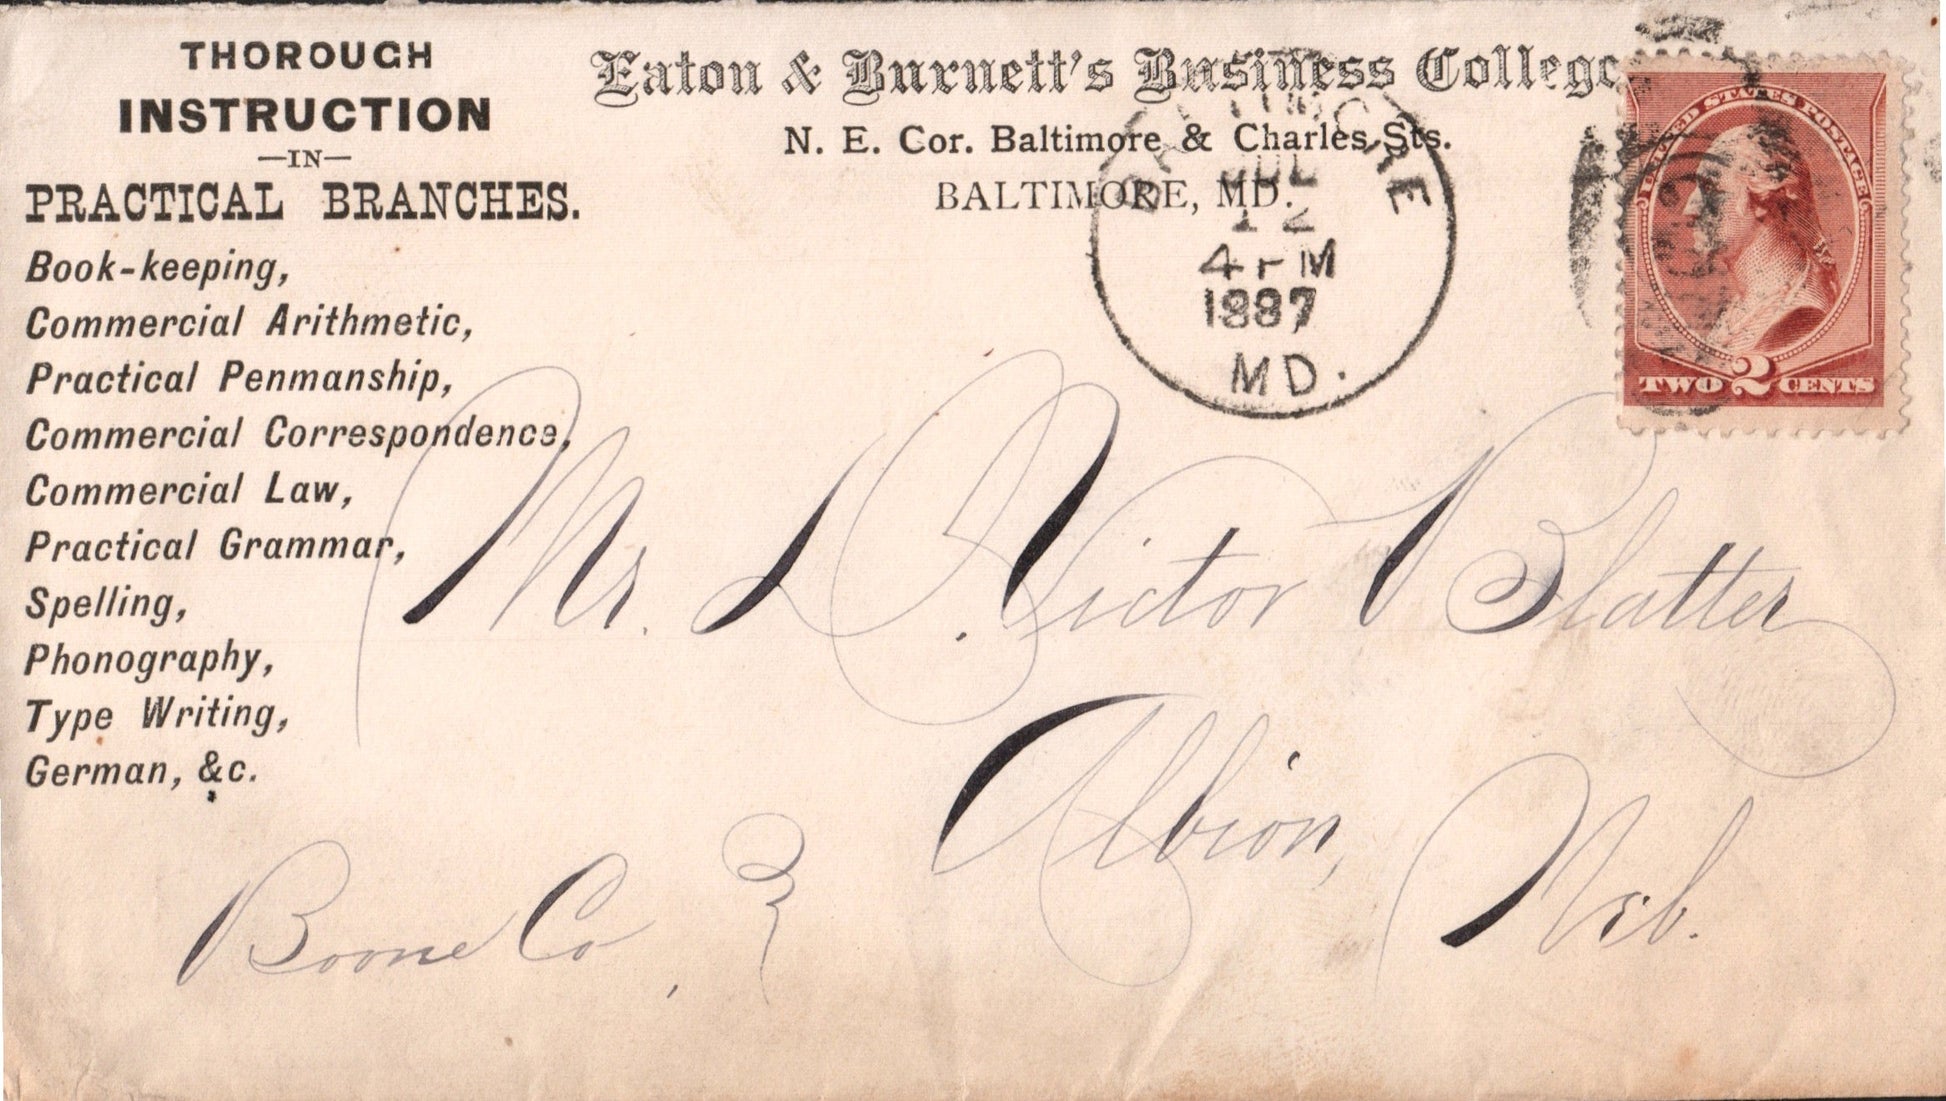 THOROUGH
INSTRUCTION
—IN—
PRACTICAL BRANCHES.
Book-keeping,
Commercial Arithmetic,
Practical Penmanship,
Commercial Correspondence,
Commercial Law,
Practical Grammar,
Spelling,
Phonography,
Type Writing,
German, &c.
Eaton & Burnett's Business College
N. E. Cor. Baltimore & Charles Sts.
BALTIMORE, MD.
BALTIMORE
JUL
12
4 PM
1887
MD.
UNITED STATES POSTAGE
TWO 2 CENTS
Mr. D. Victor Blatter
Albion, Neb.
Boone Co,